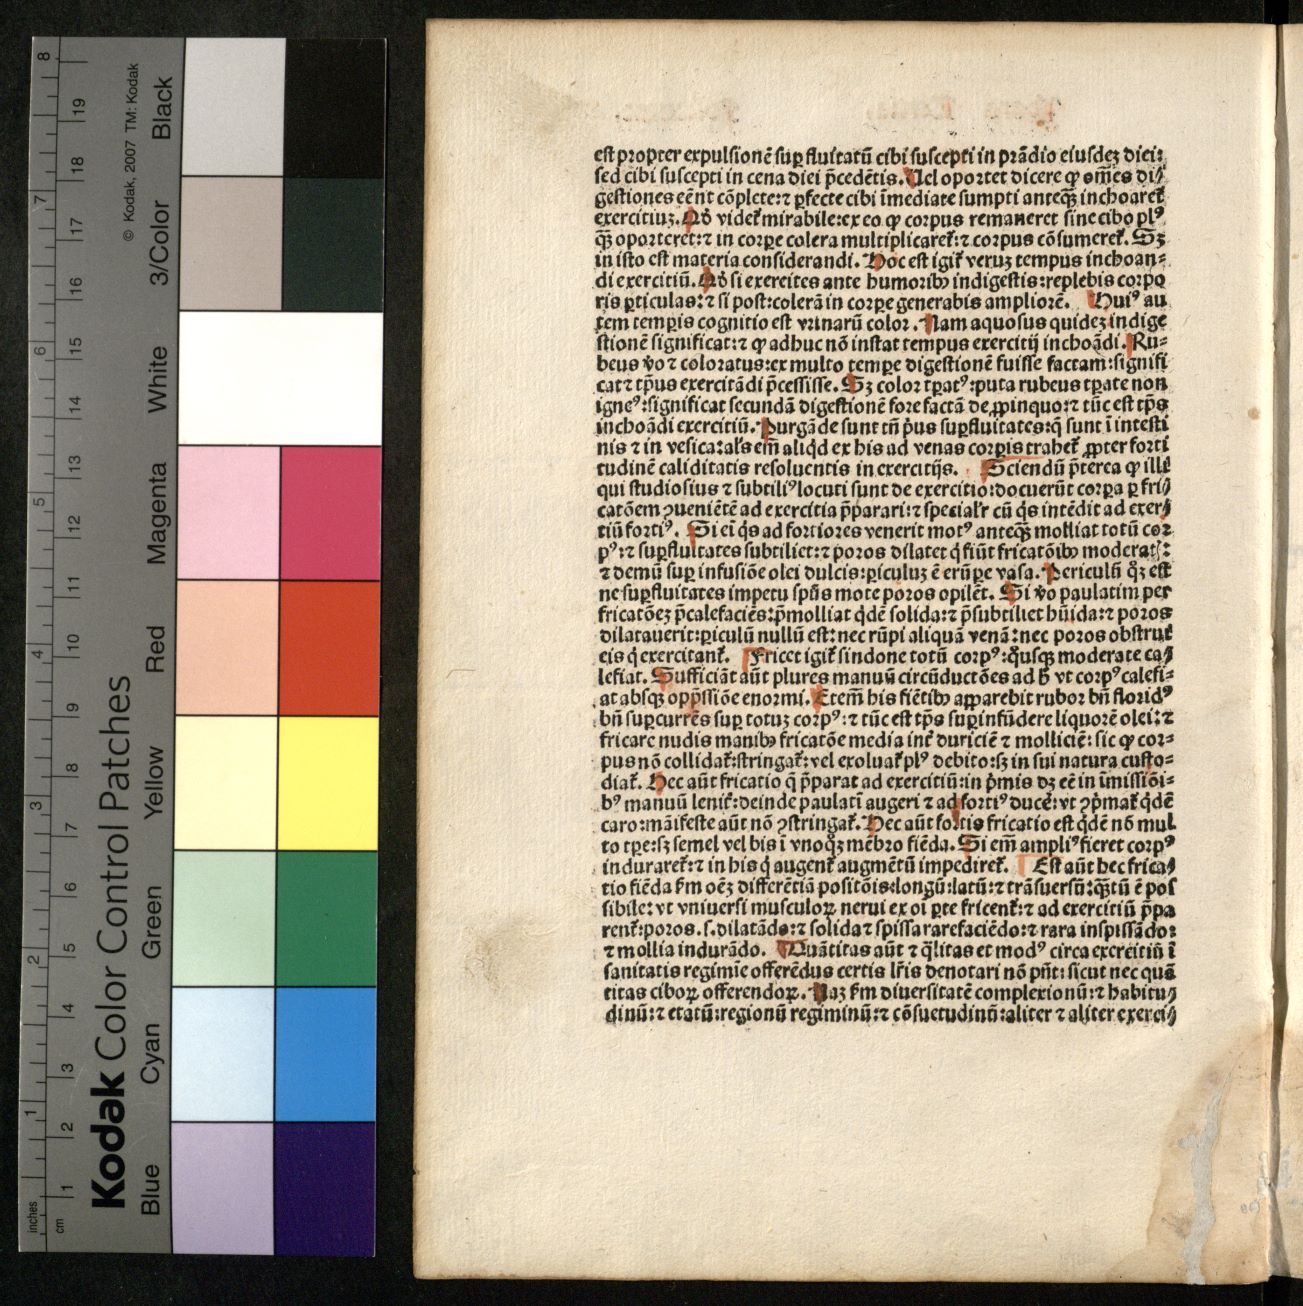 Kodak Color Control Patches
© Kodak, 2007 TM: Kodak
Blue Cyan Green Yellow Red Magenta White 3/Color Black
inches 1 2 3 4 5 6 7 8
cm 1 2 3 4 5 6 7 8 9 10 11 12 13 14 15 16 17 18 19
est propter expulsionē suꝑfluitatū cibi suscepti in prādio eiusdeꝫ diei:
sed cibi suscepti in cena diei p̄cedētis. Uel oportet dicere ꝙ om̄es di⸗
gestiones eēnt cōplete: ⁊ ꝑfecte cibi īmediate sumpti anteqꝫ̄ inchoaret̄
exercitiuꝫ. Qd̓ videt̄ mirabile: ex eo ꝙ corpus remaneret sine cibo plꝰ
qꝫ̄ oporteret: ⁊ in corꝑe colera multiplicaret̄: ⁊ corpus cōsumeret̄. Sꝫ
in isto est materia considerandi. Hoc est igit̄ veruꝫ tempus inchoan⸗
di exercitiū. Qd̓ si exerceites ante humoribꝰ indigestis: replebis corpo
ris ꝑticulas: ⁊ si post: colerā in corꝑe generabis ampliorē. Huiꝰ au
tem temꝑis cognitio est vrinarū color. Nam aquosus quideꝫ indige
stionē significat: ⁊ ꝙ adhuc nō instat tempus exercitij inchoādi. Ru⸗
beus v̓o ⁊ coloratus: ex multo temꝑe digestionē fuisse factam: signifi
cat ⁊ tp̄us exercitādi p̄cessisse. Sꝫ color tꝑatꝰ: puta rubeus tꝑate non
igneꝰ: significat secundā digestionē fore factā de ꝓpinquo: ⁊ tūc est tp̄s
inchoādi exercitiū. Purgāde sunt tn̄ p̓us suꝑfluitates: q̄ sunt ī intesti
nis ⁊ in vesica: al's em̄ aliqd̓ ex his ad venas corꝑis trahet̄ ꝓpter forti
tudinē caliditatis resoluentis in exercitijs. Sciendū p̄terea ꝙ illi
qui studiosius ⁊ subtiliꝰ locuti sunt de exercitio: docuerūt corꝑa ꝑ fri⸗
catōem ꝯueniētē ad exercitia p̄parari: ⁊ specialr̄ cū q̓s intēdit ad exer⸗
tiū fortiꝰ. Si ei q̓s ad fortiores venerit motꝰ anteqꝫ̄ molliat totū cor
pꝰ: ⁊ suꝑfluitates subtiliet: ⁊ poros dilatet q̓ fiūt fricatōibꝰ moderat̄:
⁊ demū suꝑ infusiōe olei dulcis: ꝑiculuꝫ ē erūꝑe vasa. Periculū qͦꝫ est
ne suꝑfluitates impetu sp̄us mote poros opilēt. Si v̓o paulatim per
fricatōeꝫ p̄calefaciēs: p̄molliat qd̓ē solida: ⁊ p̄subtiliet hūida: ⁊ poros
dilatauerit: ꝑiculū nullū est: nec rūpi aliquā venā: nec poros obstrui
eis q̓ exercitant̄. Fricet igit̄ sindone totū corpꝰ: q̓usqꝫ moderate ca⸗
lefiat. Sufficiāt aūt plures manuū circūductōes ad h̓ vt corpꝰ calefi⸗
at absqꝫ opp̄ssiōe enormi. Etem̄ his fiētibꝰ apparebit rubor bn̄ floridꝰ
bn̄ suꝑcurrēs suꝑ totuꝫ corpꝰ: ⁊ tūc est tp̄s suꝑinfūdere liquorē olei: ⁊
fricare nudis manibꝰ fricatōe media int̄ duriciē ⁊ molliciē: sic ꝙ cor⸗
pus nō collidat̄: stringat̄: vel exoluat̄ plꝰ debito: sꝫ in sui natura custo⸗
diat̄. Hec aūt fricatio q̄ p̄parat ad exercitiū: in p̓mis dꝫ eē in īmissiōi⸗
bꝰ manuū lenit̄: deinde paulatī augeri ⁊ ad fortiꝰ duce: vt ꝯp̓mat̄ qd̓ē
caro: māifeste aūt nō ꝯstringat̄. Hec aūt fortis fricatio est qd̓ē nō mul
to tꝑe: sꝫ semel vel bis ī vnoqͦꝫ mēbro fiēda. Si em̄ ampliꝰ fieret corpꝰ
induraret̄: ⁊ in his q̓ augent̄ augmētū impediret̄. Est aūt hec frica⸗
tio fiēda ẜm oēꝫ differētiā positōis: longū: latū: ⁊ trāsuersū: qꝫ̄tū ē pos
sibile: vt vniuersi musculoꝝ nerui ex oi ꝑte fricent̄: ⁊ ad exercitiū p̄pa
rent̄: poros .s. dilatādo: ⁊ solida ⁊ spissa rarefaciēdo: ⁊ rara inspissādo:
⁊ mollia indurādo. Quātitas aūt ⁊ q̄litas et modꝰ circa exercitiū ī
sanitatis regimīe offerēdus certis lr̄is denotari nō pn̄t: sicut nec quā
titas ciboꝝ offerendoꝝ. Naꝫ ẜm diuersitatē complexionū: ⁊ habitu⸗
dinū: ⁊ etatū: regionū regiminū: ⁊ cōsuetudinū: aliter ⁊ aliter exerci⸗